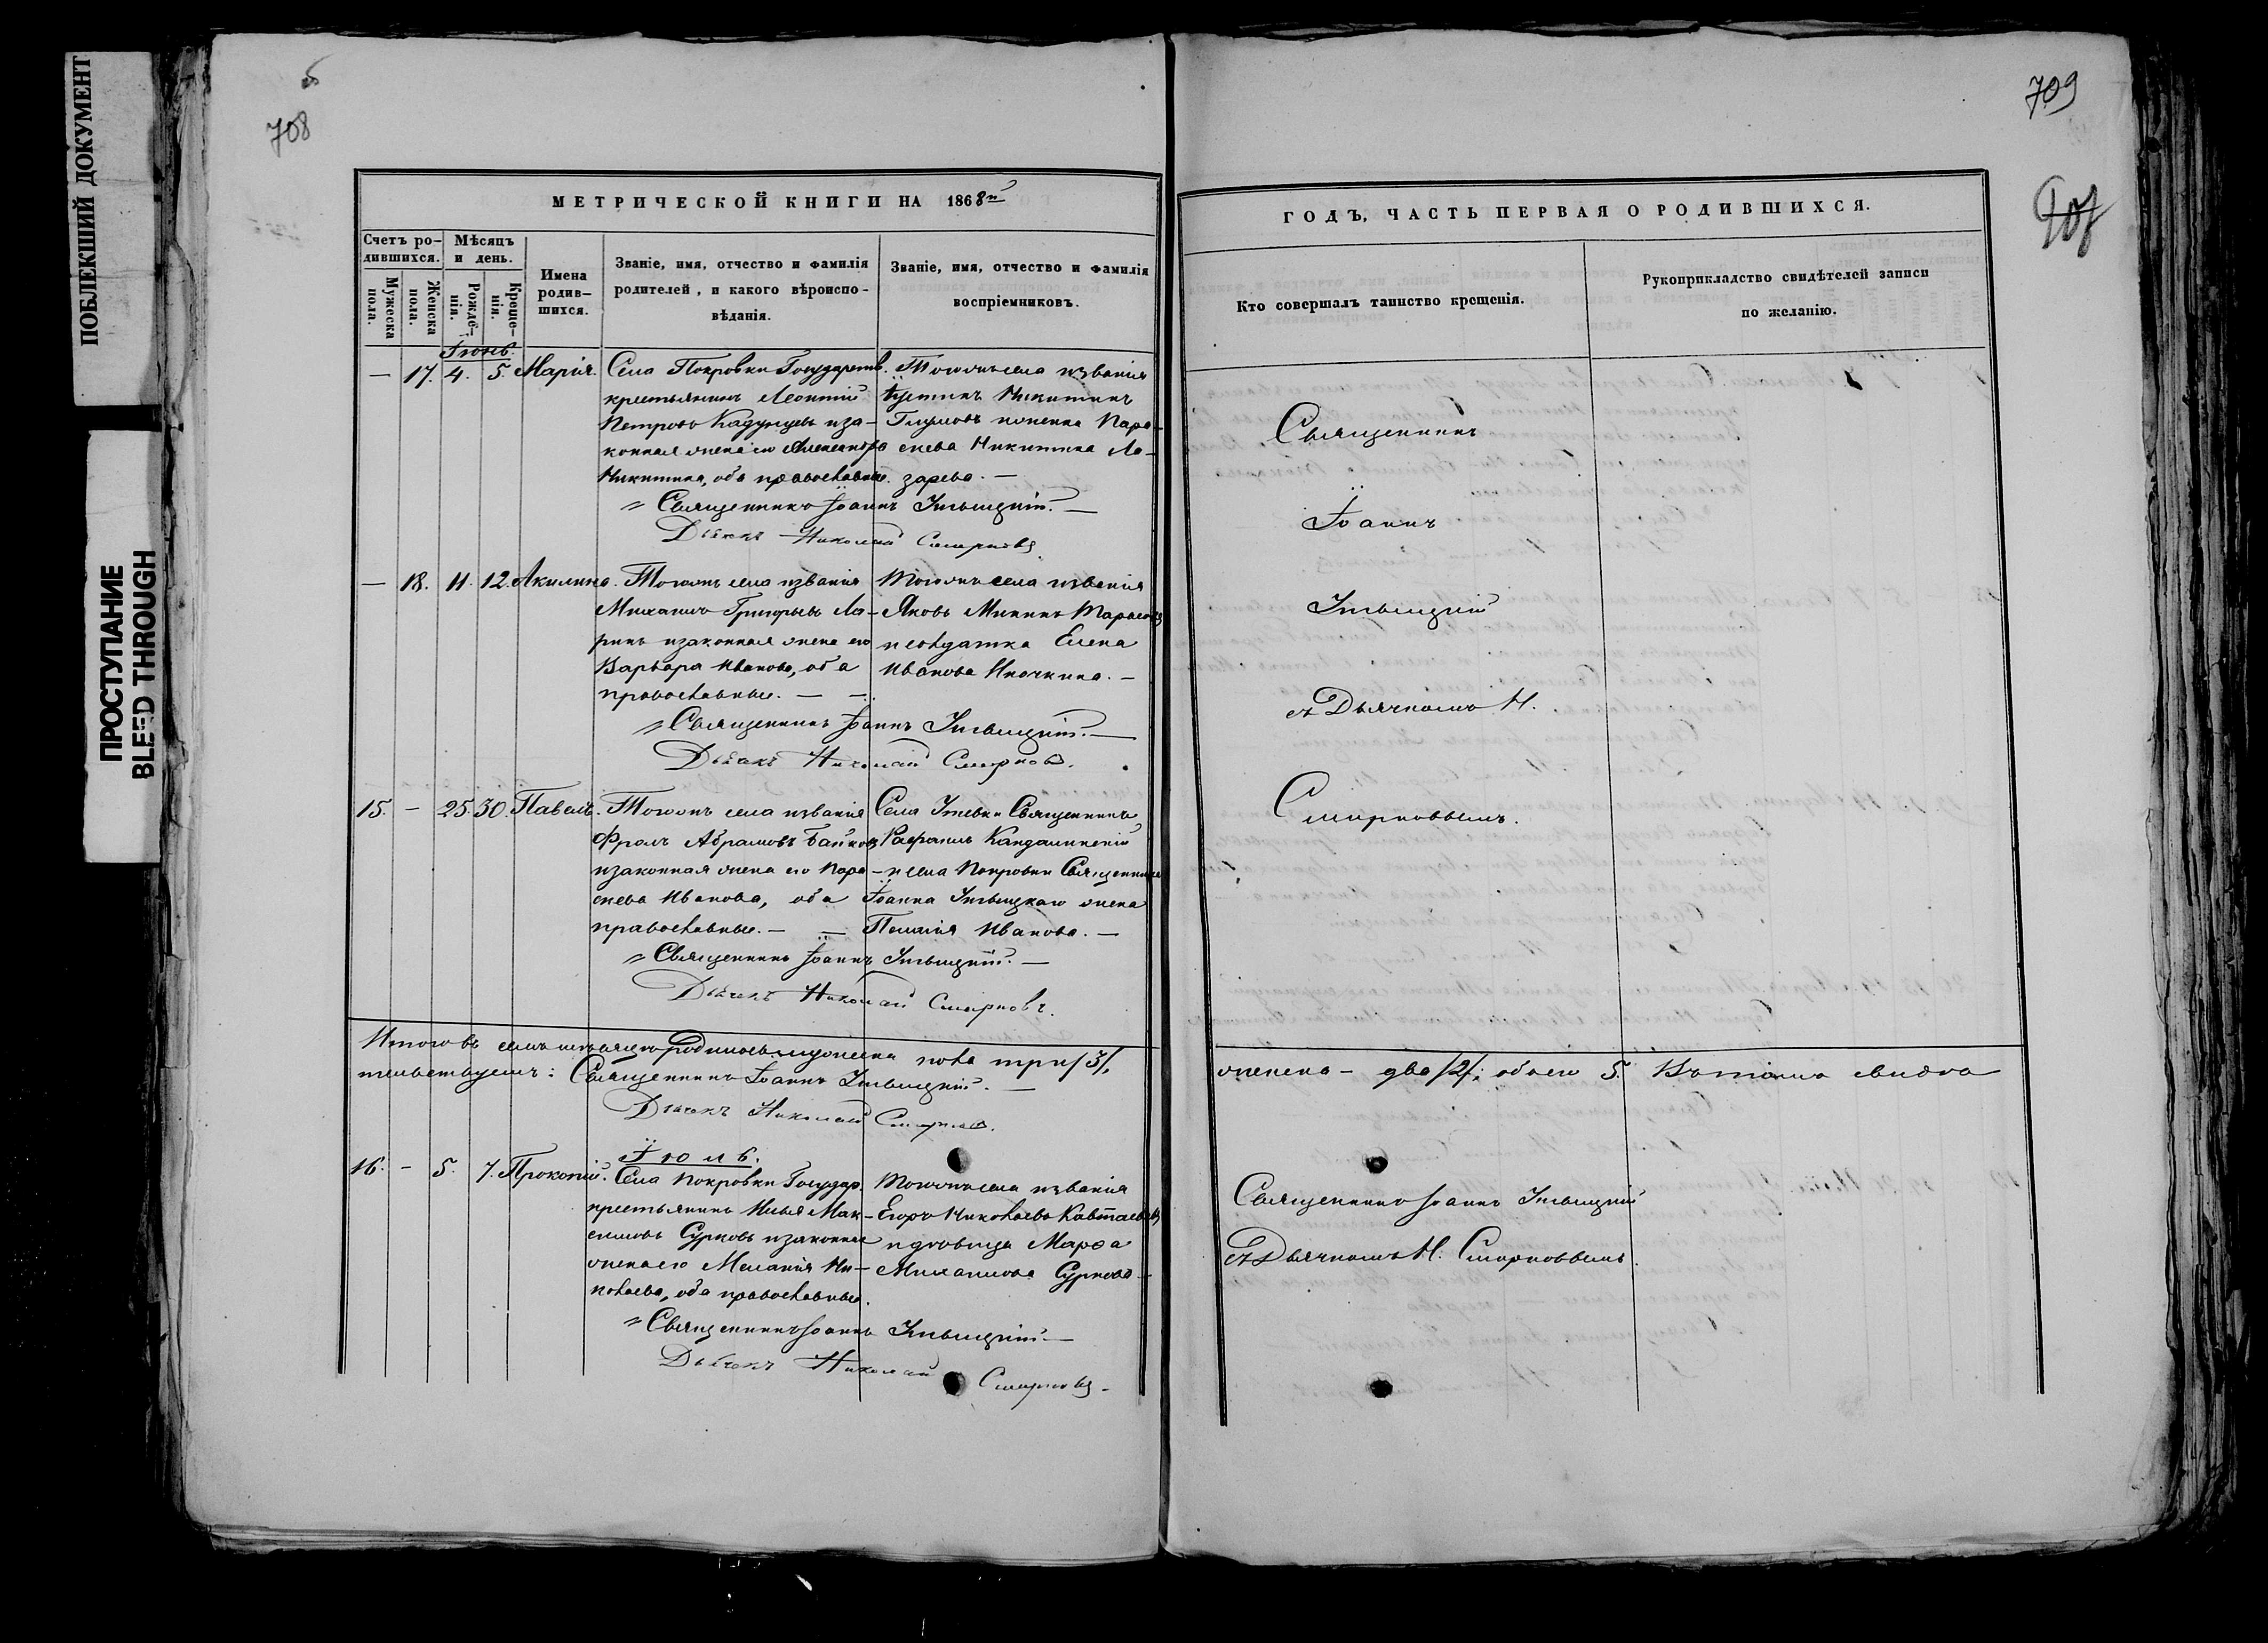 ПОБЛЕКШИЙ ДОКУМЕНТ
ПРОСТУПАНИЕ
BLEED THROUGH
об
708
МЕТРИЧЕСКОЙ КНИГИ НА 1868й
Счетъ ро-
дившихся.
Мужеска пола.
Женска пола.
Мѣсяцъ
и день.
Рожде-
нія.
Креще-
нія.
Имена
родив-
шихся.
Званіе, имя, отчество и фамилія
родителей, и какого вѣроиспо-
вѣданія.
Званіе, имя, отчество и фамилія
воспріемниковъ.
Іюнь.
— 17. 4. 5. Марія. Села Покровки Государств.
крестьянинъ Леонтій
Петровъ иза-
конная жена его Александра
Никитина, оба православные.
Тогожъ села и званія
Никитинъ
и женка Пара-
скева Никитина Ла-
зарева. —
Священникъ Іоаннъ
Дьячекъ Николай Смирновъ
— 18. 11. 12. Акилина. Тогожъ села и званія
Михаилъ Григорьевъ Ла-
ринъ и законная жена его
Варвара Иванова, оба
православные. — —
Тогожъ села и званія
Яковъ Тарасовъ
и солдатка Елена
Иванова —
Священникъ Іоаннъ
Дьячекъ Николай Смирновъ.
15. — 25. 30. Павелъ. Тогожъ села и званія
Фролъ Абрамовъ
и законная жена его Пара-
скева Иванова, оба
православные. — —
Села Утевки Священникъ
Рафаилъ
и села Покровки Священника
Іоанна жена
Пелагія Иванова. —
Священникъ Іоаннъ
Дьячекъ Николай Смирновъ.
Итого въ семъ мѣсяцѣ родилось мужеска пола три /3/,
тельствуемъ: Священникъ Іоаннъ
Дьячекъ Николай Смирновъ.
Іюль.
16. — 5. 7. Прокопій. Села Покровки Государ.
крестьянинъ Илья Мак-
симовъ Сурковъ и законная
жена его Меланія Ни-
колаева, оба православные.
Тогожъ села и званія
Егоръ Николаевъ
и вдовица Марѳа
Михаилова Суркова —
Священникъ Іоаннъ
Дьячекъ Николай Смирновъ
709
ГОДЪ, ЧАСТЬ ПЕРВАЯ О РОДИВШИХСЯ.
Кто совершалъ таинство крещенія.
Рукоприкладство свидѣтелей записи
по желанію.
Священникъ
Іоаннъ
съ Дьячкомъ Н.
Смирновымъ.
женска — два /2/; обоего 5. Въ томъ свидѣ
Священникъ Іоаннъ
съ Дьячкомъ Н. Смирновымъ.